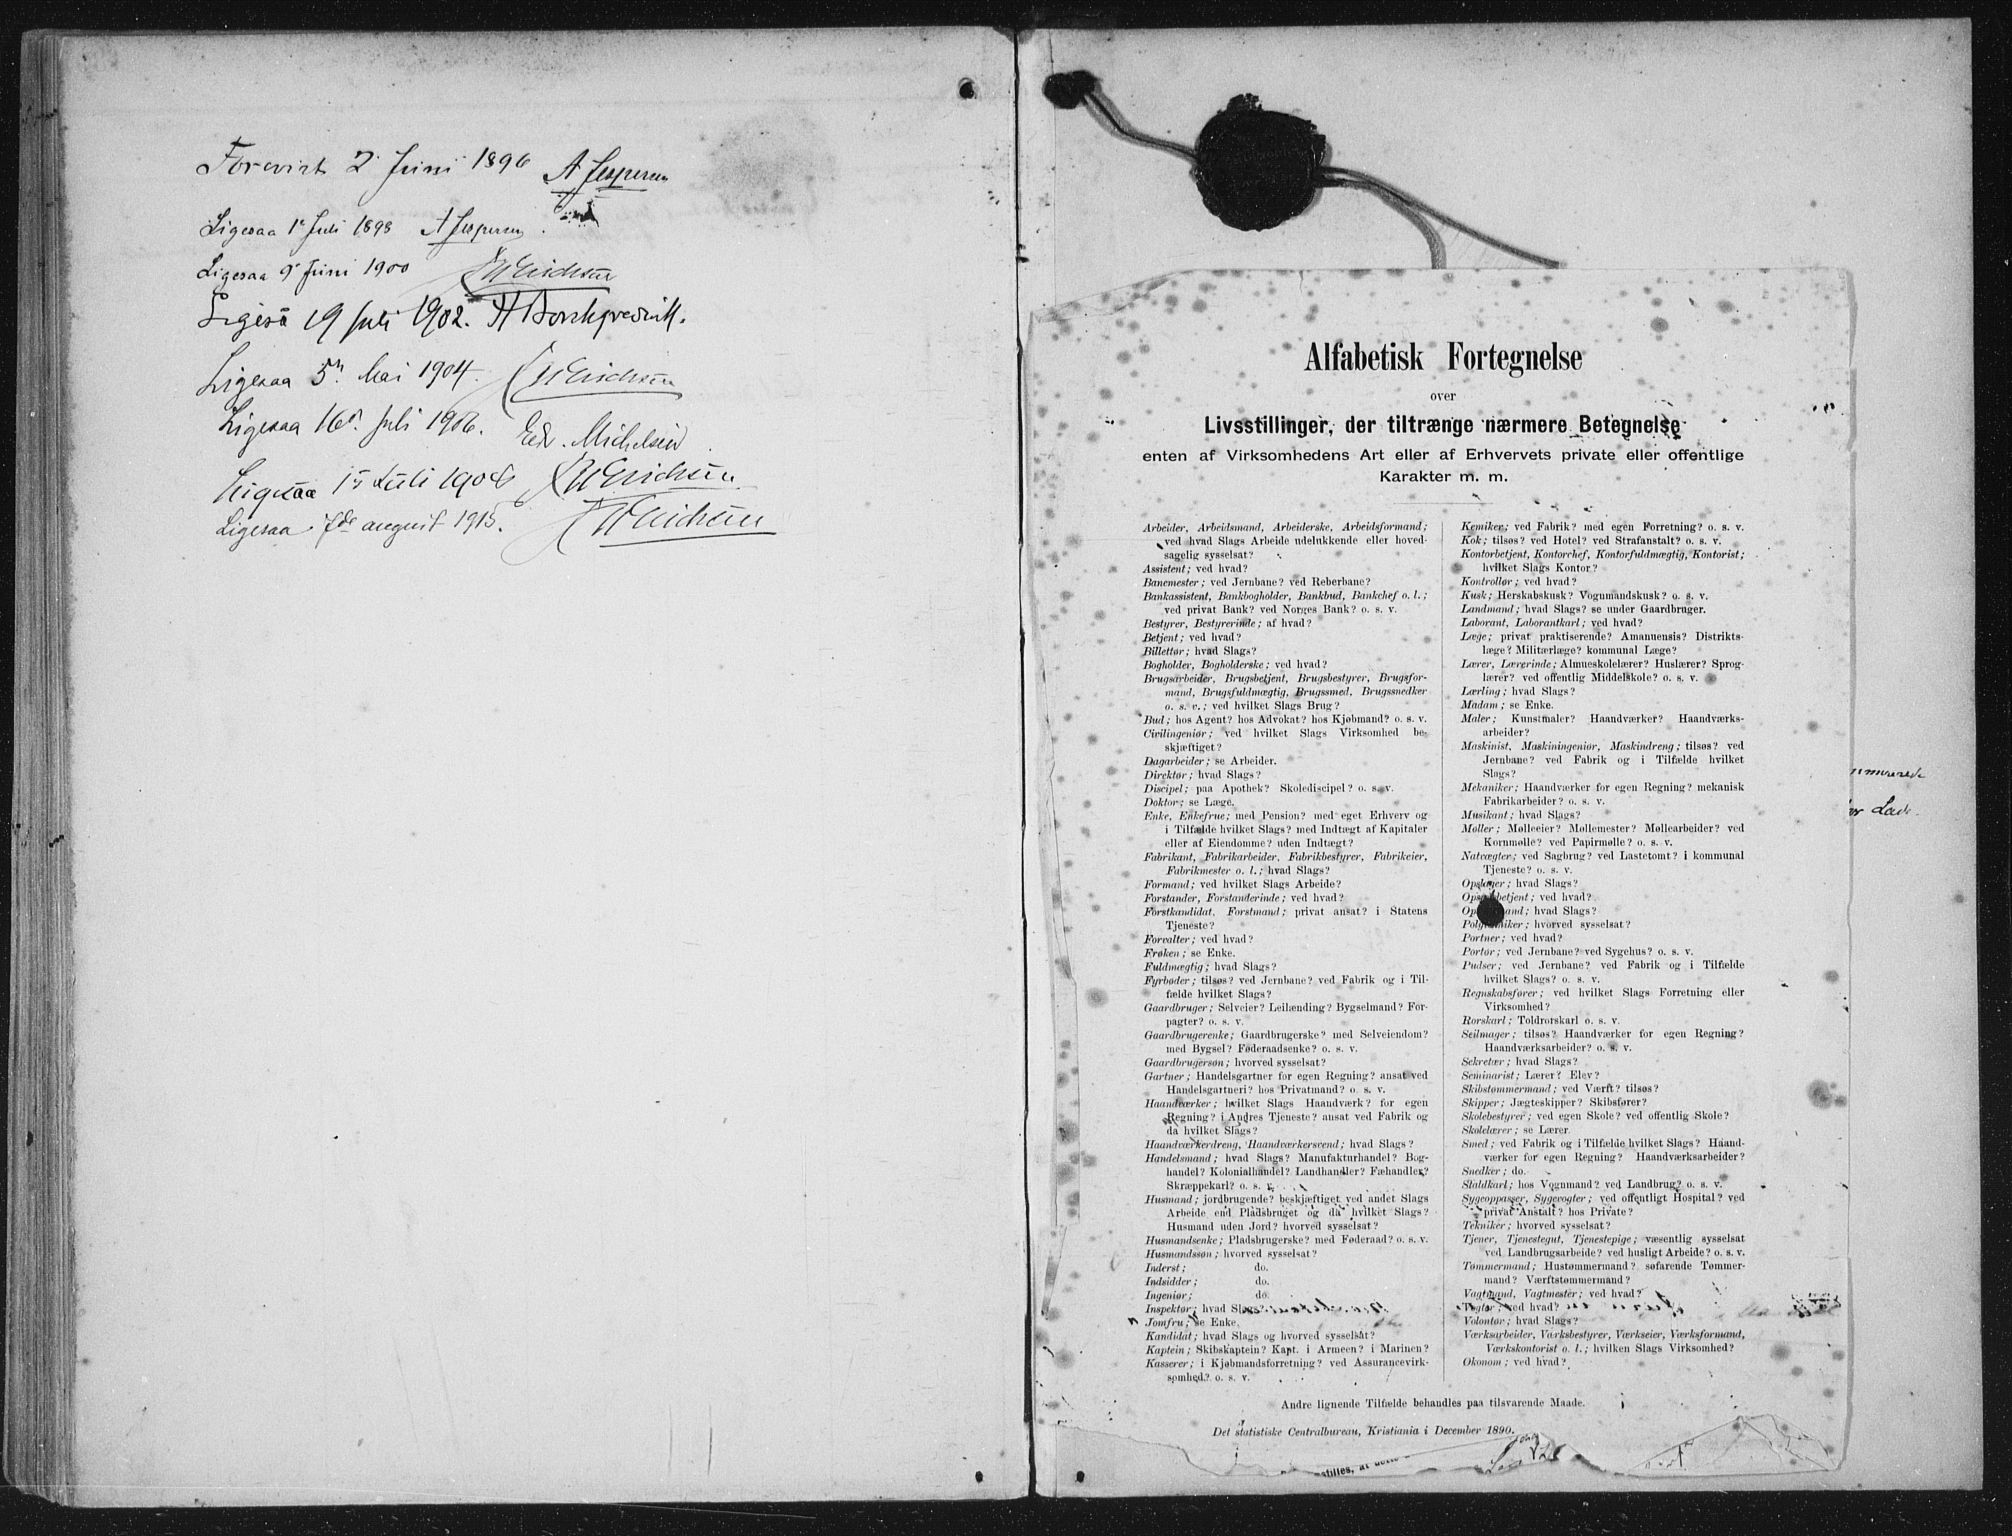 Forevist 2 Juni 1896 A Jespersen
Ligesaa 1e Juli 1898 A Jespersen
Ligesaa 9e Juni 1900 Erichsen
Ligeså 19 Juli 1902.
Ligesaa 5te Mai 1904. Erichsen
Ligesaa 16de Juli 1906. Edv. Michelsen
Ligesaa 1ste Juli 1908 Erichsen
Ligesaa 7de august 1915. Erichsen
Alfabetisk Fortegnelse
over
Livsstillinger, der tiltrænge nærmere Betegnelse
enten af Virksomhedens Art eller af Erhvervets private eller offentlige
Karakter m. m.
Arbeider, Arbeidsmand, Arbeiderske, Arbeidsformand;
ved hvad Slags Arbeide udelukkende eller hoved-
sagelig sysselsat?
Assistent; ved hvad?
Banemester; ved Jernbane? ved Reberbane?
Bankassistent, Bankbogholder, Bankbud, Bankchef o. l.;
ved privat Bank? ved Norges Bank? o. s. v.
Bestyrer, Bestyrerinde; af hvad?
Betjent; ved hvad?
Billettør; hvad Slags?
Bogholder, Bogholderske; ved hvad?
Brugsarbeider, Brugsbetjent, Brugsbestyrer, Brugsfor-
mand, Brugsfuldmægtig, Brugssmed, Brugssnedker
o. s. v.; ved hvilket Slags Brug?
Bud; hos Agent? hos Advokat? hos Kjøbmand? o. s. v.
Civilingeniør; ved hvilket Slags Virksomhed be-
skjæftiget?
Dagarbeider; se Arbeider.
Direktør; hvad Slags?
Discipel; paa Apothek? Skolediscipel? o. s. v.
Doktor; se Læge.
Enke, Enkefrue; med Pension? med eget Erhverv og
i Tilfælde hvilket Slags? med Indtægt af Kapitaler
eller af Eiendomme? uden Indtægt?
Fabrikant, Fabrikarbeider, Fabrikbestyrer, Fabrikeier,
Fabrikmester o. l.; hvad Slags?
Formand; ved hvilket Slags Arbeide?
Forstander, Forstanderinde; ved hvad?
Forstkandidat, Forstmand; privat ansat? i Statens
Tjeneste?
Forvalter; ved hvad?
Frøken; se Enke.
Fuldmægtig; hvad Slags?
Fyrbøder; tilsøs? ved Jernbane? ved Fabrik og i Til-
fælde hvilket Slags?
Gaardbruger; Selveier? Leilænding? Bygselmand? For-
pagter? o. s. v.
Gaardbrugerenke; Gaardbrugerske? med Selveiendom?
med Bygsel? Føderaadsenke? o. s. v.
Gaardbrugersøn; hvorved sysselsat?
Gartner; Handelsgartner for egen Regning? ansat ved
Handelsgartneri? hos Privatmand? o. s. v.
Haandværker; hvilket Slags Haandværk? for egen
Regning? i Andres Tjeneste? ansat ved Fabrik og
da hvilket Slags?
Haandværkerdreng, Haandværkersvend; hvad Slags?
Handelsmand; hvad Slags? Manufakturhandel? Bog-
handel? Kolonialhandel? Landhandler? Fæhandler?
Skræppekarl? o. s. v.
Husmand; jordbrugende? beskjæftiget ved andet Slags
Arbeide end Pladsbruget og da hvilket Slags?
Husmand uden Jord? hvorved sysselsat?
Husmandsenke; Pladsbrugerske? med Føderaad? o. s. v.
Husmandssøn; hvorved sysselsat?
Inderst; do.
Indsidder; do.
Ingeniør; do.
Inspektør; hvad Slags?
Jomfru; se Enke.
Kandidat; hvad Slags og hvorved sysselsat?
Kaptein; Skibskaptein? Kapt. i Armeen? i Marinen?
Kasserer; i Kjøbmandsforretning? ved Assurancevirk-
somhed? o. s. v.
Kemiker; ved Fabrik? med egen Forretning? o. s. v.
Kok; tilsøs? ved Hotel? ved Strafanstalt? o. s. v.
Kontorbetjent, Kontorchef, Kontorfuldmægtig, Kontorist;
hvilket Slags Kontor?
Kontrollør; ved hvad?
Kusk; Herskabskusk? Vognmandskusk? o. s. v.
Landmand; hvad Slags? se under Gaardbruger.
Laborant, Laborantkarl; ved hvad?
Læge; privat praktiserende? Amanuensis? Distrikts-
læge? Militærlæge? kommunal Læge?
Lærer, Lærerinde; Almueskolelærer? Huslærer? Sprog-
lærer? ved offentlig Middelskole? o. s. v.
Lærling; hvad Slags?
Madam; se Enke.
Maler; Kunstmaler? Haandværker? Haandværks-
arbeider?
Maskinist, Maskiningeniør, Maskindreng; tilsøs? ved
Jernbane? ved Fabrik og i Tilfælde hvilket
Slags?
Mekaniker; Haandværker for egen Regning? mekanisk
Fabrikarbeider? o. s. v.
Musikant; hvad Slags?
Møller; Mølleeier? Møllemester? Møllearbeider? ved
Kornmølle? ved Papirmølle? o. s. v.
Natvægter; ved Sagbrug? ved Lastetomt? i kommunal
Tjeneste? o. s. v.
Opsiger; hvad Slags?
betjent; ved hvad?
and; hvad Slags?
Polytekniker; hvorved sysselsat?
Portner; ved hvad?
Portør; ved Jernbane? ved Sygehus? o. s. v.
Pudser; ved Jernbane? ved Fabrik og i Tilfælde
hvilket Slags? o. s. v.
Regnskabsfører; ved hvilket Slags Forretning eller
Virksomhed?
Rorskarl; Toldrorskarl o. s. v.
Seilmager; tilsøs? Haandværker for egen Regning?
Haandværksarbeider? o. s. v.
Sekretær; hvad Slags?
Seminarist; Lærer? Elev?
Skibstømmermand; ved Værft? tilsøs?
Skipper; Jægteskipper? Skibsfører?
Skolebestyrer; ved egen Skole? ved offentlig Skole?
Skolelærer; se Lærer.
Smed; ved Fabrik og i Tilfælde hvilket Slags? Haand-
værker for egen Regning? Haandværksarbeider?
Snedker; do.
Staldkarl; hos Vognmand? ved Landbrug? o. s. v.
Sygeoppasser, Sygevogter; ved offentligt Hospital? ved
privat Anstalt? hos Private?
Tekniker; hvorved sysselsat?
Tjener, Tjenestegut, Tjenestepige; væsentlig sysselsat
ved Landbrugsarbeide? ved husligt Arbeide? o. s. v.
Tømmermand; Hustømmermand? søfarende Tømmer-
mand? Værftstømmermand?
Vagtmand, Vagtmester; ved hvad?
Vogter; ved hvad?
Volontør; hvad Slags?
Værksarbeider, Værksbestyrer, Værkseier, Værksformand,
Værkskontorist o. l.; hvilken Slags Virksomhed?
Økonom; ved hvad?
Andre lignende Tilfælde behandles paa tilsvarende Maade.
Det statistiske Centralbureau, Kristiania i December 1890.
stilles, at dette